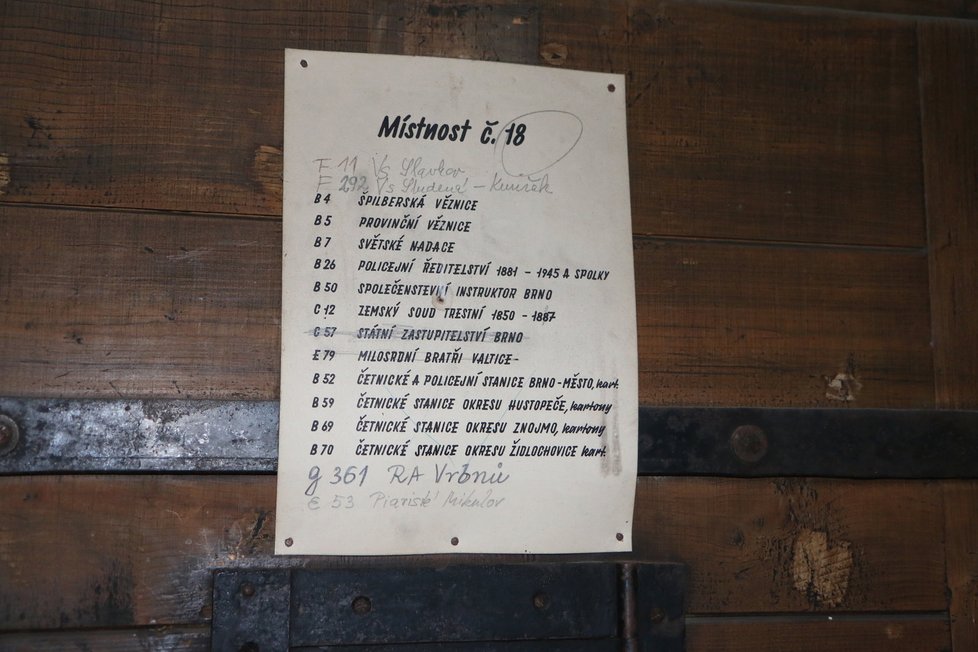 Místnost č. 18
F 11 Vs Slavkov
F 292 Vs Studená - Kunžak
B 4 ŠPILBERSKÁ VĚZNICE
B 5 PROVINČNÍ VĚZNICE
B 7 SVĚTSKÉ NADACE
B 26 POLICEJNÍ ŘEDITELSTVÍ 1881 - 1945 A SPOLKY
B 50 SPOLEČENSTEVNÍ INSTRUKTOR BRNO
C 12 ZEMSKÝ SOUD TRESTNÍ 1850 - 1887
C 57 STÁTNÍ ZASTUPITELSTVÍ BRNO
E 79 MILOSRDNÍ BRATŘI VALTICE-
B 52 ČETNICKÉ A POLICEJNÍ STANICE BRNO-MĚSTO, kart.
B 59 ČETNICKÉ STANICE OKRESU HUSTOPEČE, kartony
B 69 ČETNICKÉ STANICE OKRESU ZNOJMO, kartony
B 70 ČETNICKÉ STANICE OKRESU ŽIDLOCHOVICE kart.
g 361 RA Vrbnů
E 53 Piaristé Mikulov